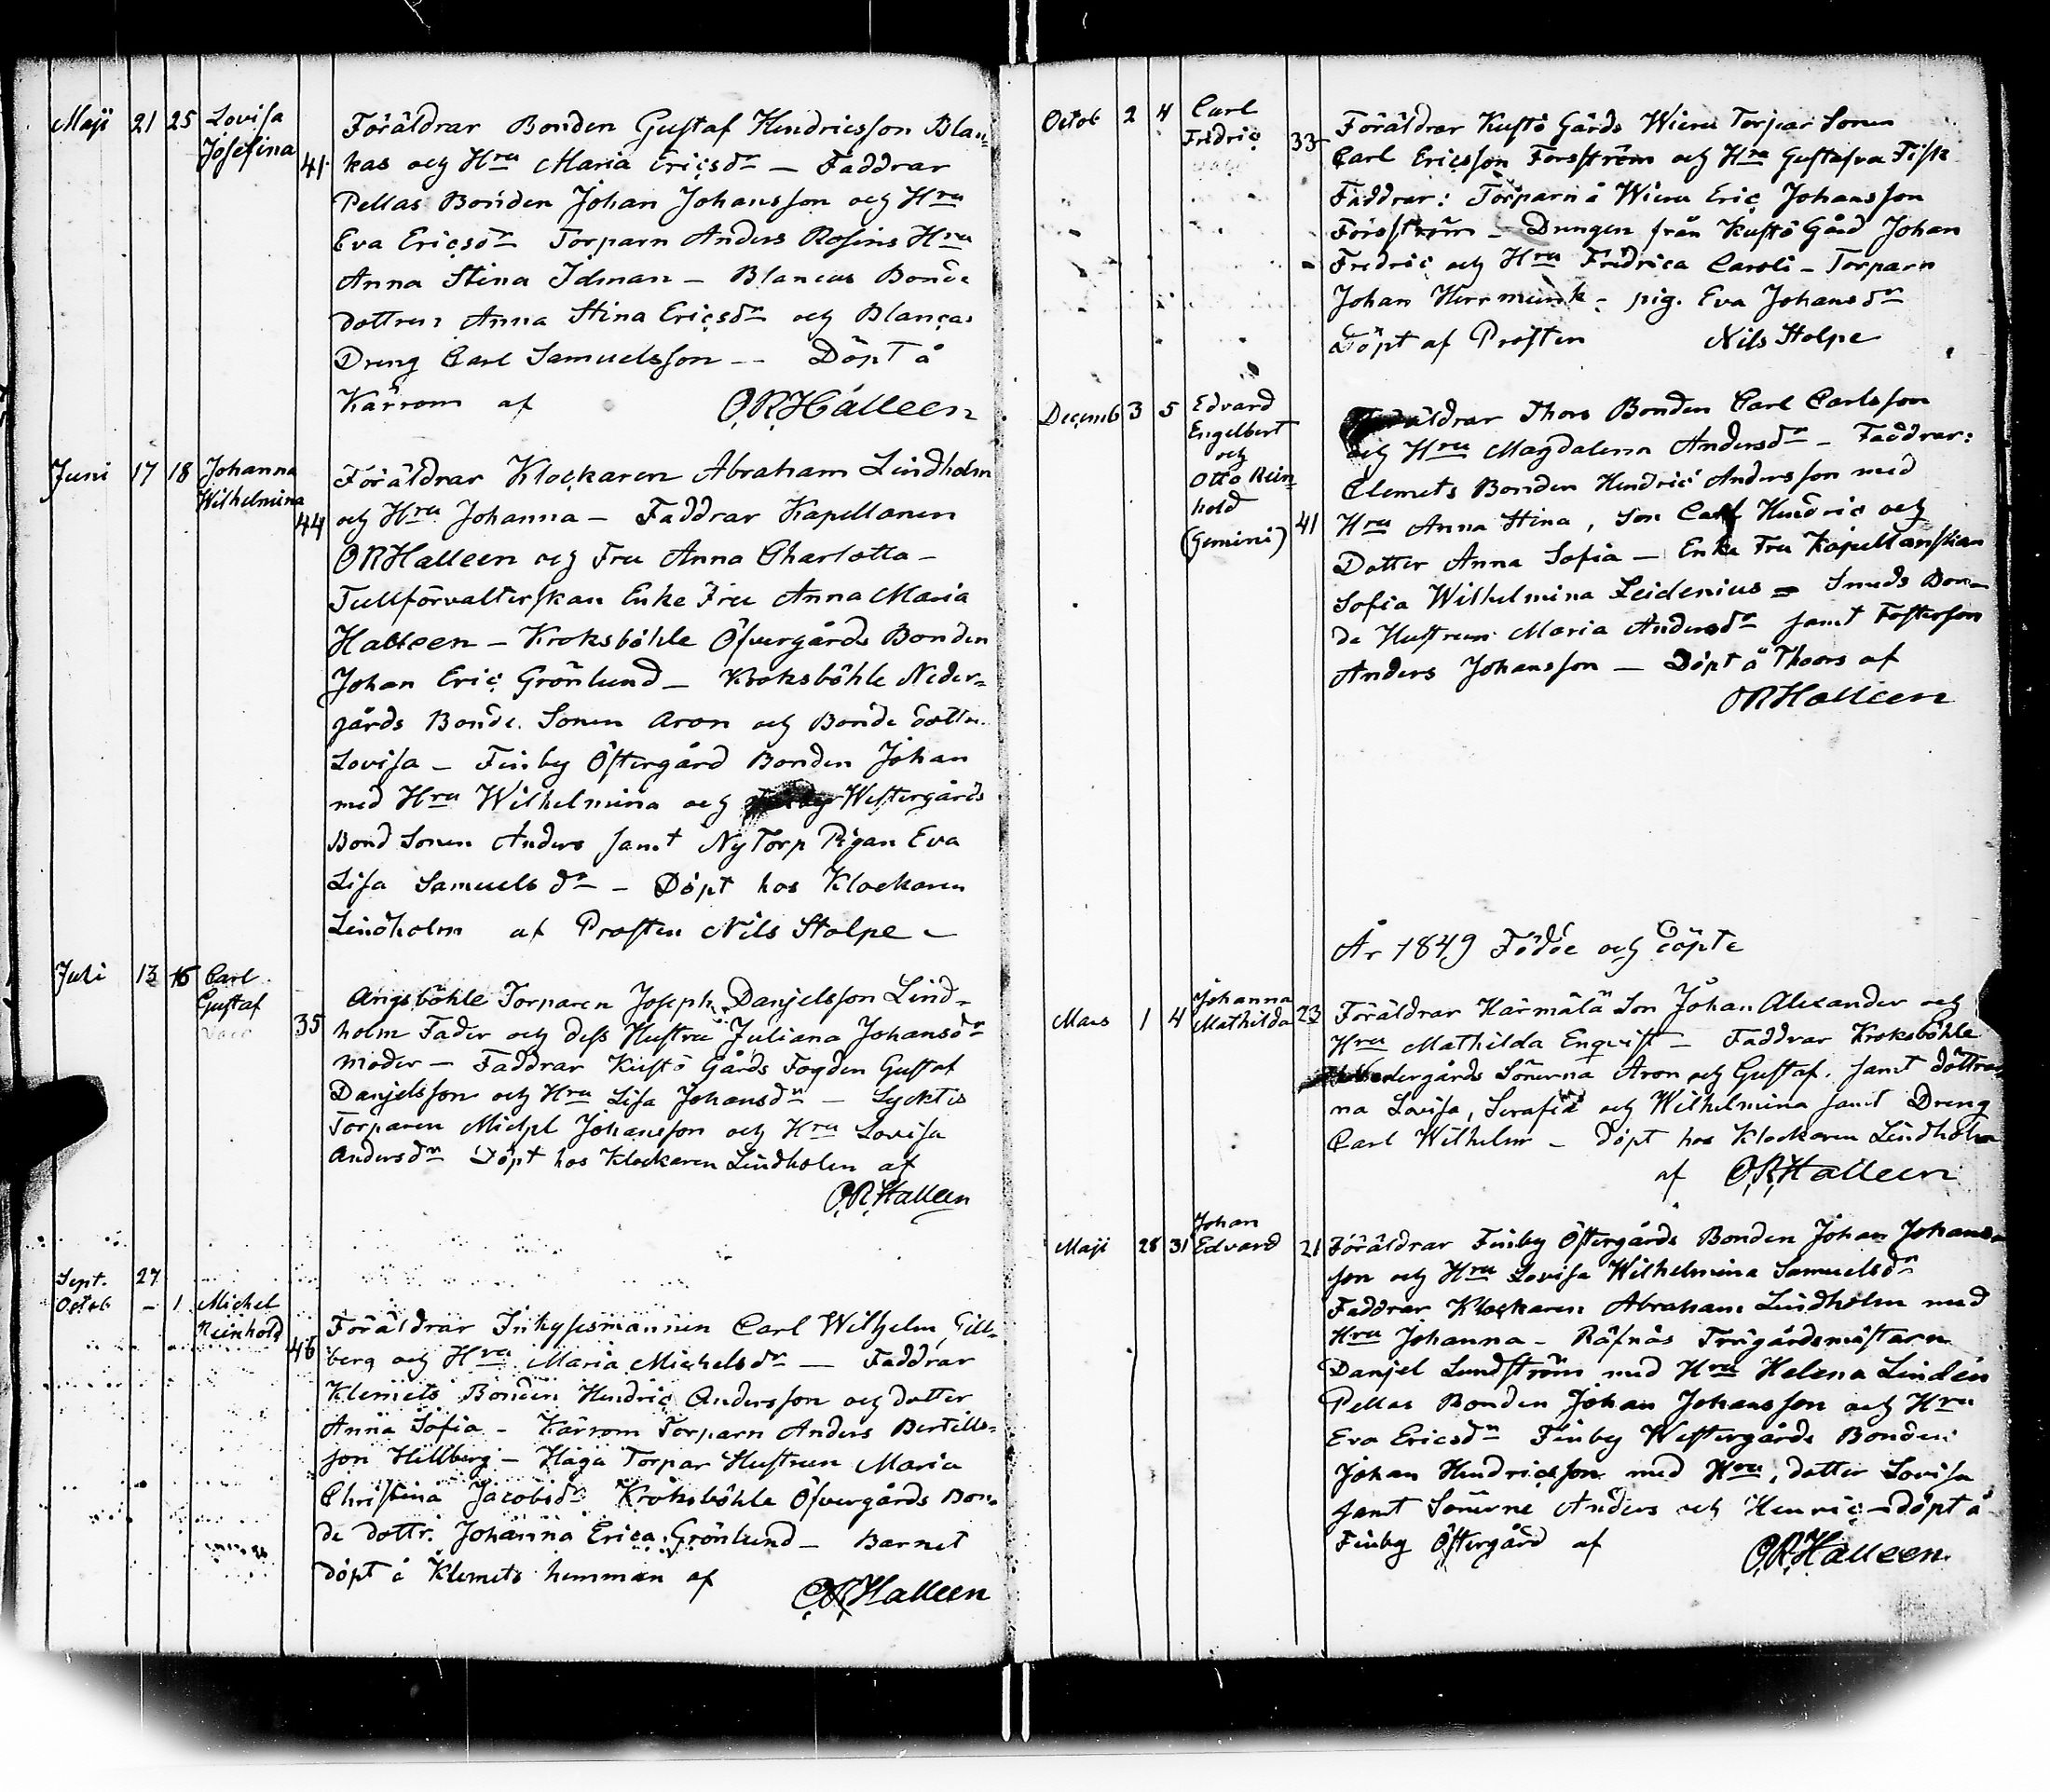 Maji 21 25 Lovisa
Josefina 41
Föräldrar Bonden Gustaf Hendricsson Blan-
kas och Hru Maria Ericsdr — Faddrar
Pellas Bonden Johan Johansson och Hru
Eva Ericsdr Torparn Anders Rosins Hru
Anna Stina Idman — Blancas Bonde
dottren Anna Stina Ericsdr och Blancas
Dreng Carl Samuelsson — Döpt å
Kärrom af O.R.Halleen
Juni 17 18 Johanna
Wilhelmina 44
Föräldrar Klockaren Abraham Lindholm
och Hru Johanna — Faddrar Kapellanen
ORHalleen och Fru Anna Charlotta —
Tullförvalterskan Enke Fru Anna Maria
Halleen — Kroksböhle Öfvergårds Bonden
Johan Eric Grönlund — Kroksböhle Neder-
gårds Bonde Sonen Aron och Bonde dottr.
Lovisa — Finby Östergård Bonden Johan
med Hru Wilhelmina och Westergårds
Bond Sonen Anders samt NyTorp Pigan Eva
Lisa Samuelsdr — Döpt hos Klockaren
Lindholm af Prosten Nils Stolpe —
Juli 13 16 Carl
Gustaf
35
Angsböhle Torparen Joseph Danjelsson Lind-
holm Fader och dess Hustru Juliana Johansdr
moder — Faddrar Kustö Gårds Fogden Gustaf
Danjelsson och Hru Lisa Johansdr — Lycktis
Torparen Michel Johansson och Hru Lovisa
Andersdr Döpt hos Klockaren Lindholm af
O.R.Halleen
Sept. 27
Octob — 1 Michel
Reinhold 46
Föräldrar Inhysesmannen Carl Wilhelm Gill-
berg och Hru Maria Michelsdr — Faddrar
Klemets Bonden Hendric Andersson och dotter
Anna Sofia — Kärrom Torparn Anders Bertills-
son Hellberg — Haga Torpar Hustrun Maria
Christina Jacobsdr Kroksböhle Öfvergårds Bon-
de dottr. Johanna Erica Grönlund — Barnet
döpt å Klemets hemman af ORHalleen
Octob 2 4 Carl
Fredric 33
Föräldrar Kustö Gårds Wieru Torpar Sonen
Carl Ericsson Forsström och Hru Gustafva Fisk
Faddrar: Torparn å Wieru Eric Johansson
Forsström — Drengen från Kustö Gård Johan
Fredric och Hru Fredrica Caroli — Torparn
Johan Herrmunk — pig. Eva Johansdr
Döpt af Prosten Nils Stolpe
Decemb 3 5 Edvard
Engelbert
och
Otto Rein-
hold
(Gemini) 41
Föräldrar Thors Bonden Carl Carlsson
och Hru Magdalena Andersdr — Faddrar:
Clemets Bonden Hendric Andersson med
Hru Anna Stina, Son Carl Hendric och
Dotter Anna Sofia — Enke Fru Kapellanskan
Sofia Wilhelmina Leidenius — Smeds Bon-
de Hustrun Maria Andersdr samt Fosterson
Anders Johansson — Döpt å Thoors af
ORHalleen
År 1849 Födde och döpte
Mars 1 4 Johanna
Mathilda 23
Föräldrar Härmälä Son Johan Alexander och
Hru Mathilda Enqvist — Faddrar Kroksböhle
Nedergårds Sönerna Aron och Gustaf. samt döttrar-
na Lovisa, Serafia och Wilhelmina samt Dreng
Carl Wilhelm — döpt hos Klockaren Lindholm
af O.R.Halleen
Maji 28 31 Johan
Edvard 21
Föräldrar Finby Östergårds Bonden Johan Johans-
son och Hru Lovisa Wilhelmina Samuelsdr
Faddrar Klockaren Abraham Lindholm med
Hru Johanna — Räfnäs Trägårdsmästarn
Danjel Lundström med Hru Helena Lindén
Pellas Bonden Johan Johansson och Hru
Eva Ericsdr Finby Westergårds Bonden
Johan Hendricsson med Hru, dotter Lovisa
samt Sönerne Anders och Henric — döpt å
Finby Östergård af O.R.Halleen